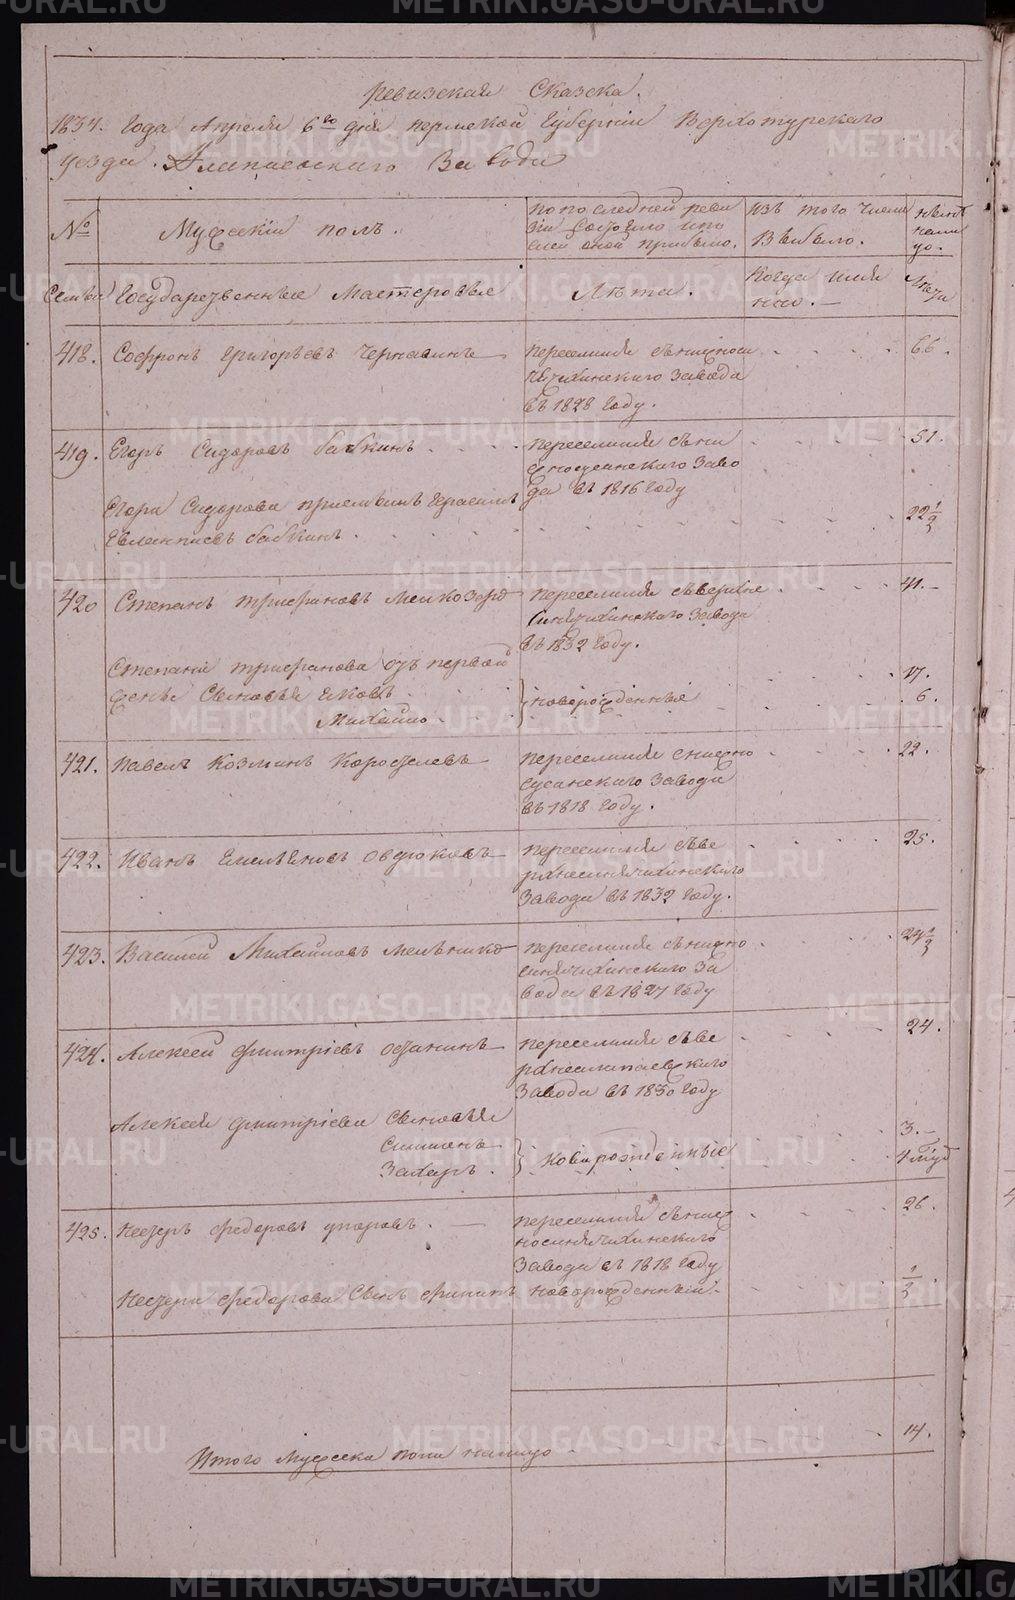 Ревизская Сказска.
1834. Года Апреля 6го дня пермской Губернии Верхотурскаго
уезда. Алапаевскаго Завода
№
Мужескiй полъ.
по последней реви
зiи состояло и по
слей оной прибыло.
изъ того числа
выбыло.
ныне
нали
цо.
Семьи
Государственные Мастеровые
Лѣта.
Когда имян
но. —
Лѣта
418. Софронъ Григорьевъ Чернавинъ
переселился съ нижноси
нячихинскаго завода
въ 1828 году.
66.
419. Егоръ Сидоровъ бабкинъ
переселился съ ни
жносусанскаго заво
да въ 1816 году
51.
Егора Сидорова приемышъ Герасимъ
Евлампiевъ бабкинъ.
22 1/2
420 Степанъ Трифановъ Мелкозеро
переселился съ верхне
синячихинскаго завода
въ 1832 году.
41. —
Степана Трифанова отъ первой
жены Сыновья Яковъ
Михайло
новорожденныя
17.
6.
421. Павелъ Козминъ Коростелевъ
переселился с нижно
сусанскаго завода
въ 1818 году.
22.
422. Иванъ Емельяновъ Овдокивъ
переселился съ ве
рхнесинячихинскаго
завода въ 1832 году.
25.
423. Василей Михайловъ Мельнико
переселился съ нижно
синячихинскаго за
вода въ 1827 году
24 1/2
424. Алексей Дмитрiевъ Останинъ
переселился съ ве
рхнеалапаевскаго
завода въ 1830 году
24.
Алексея Дмитрiева Сыновья
Симианъ
Захаръ.
новорожденные
3. —
425. Несторъ Федоровъ упоровъ.
переселился съ ниж
носинячихинскаго
завода въ 1818 году
26.
Нестера Федорова Сынъ Филипъ
новорожденный.
1/2
Итого Мужеска пола налицо
14.
METRIKI.GASO-URAL.RU